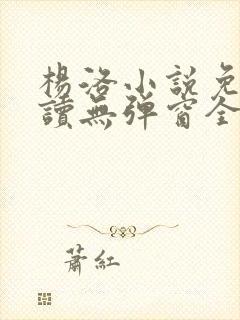 楊洛小說免
讀無彈窗全
蕭紅